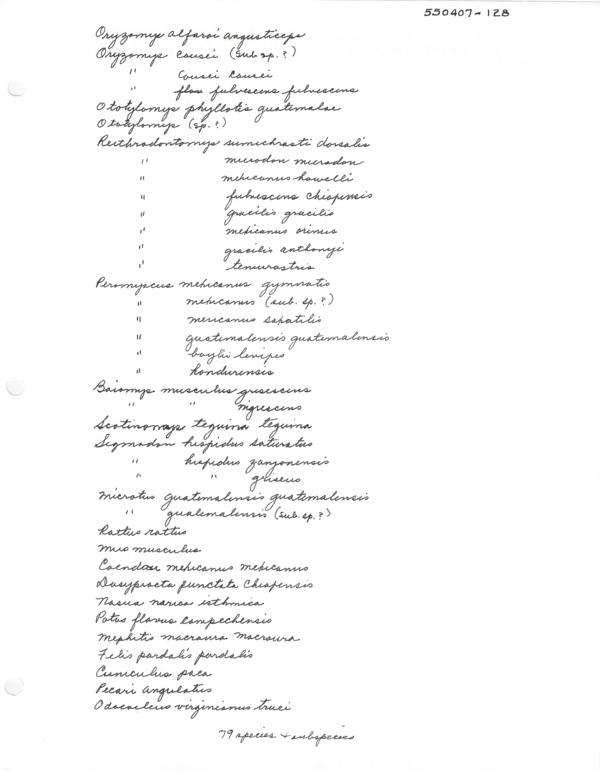 550407-128
Oryzomys alfaroi angusticeps
Oryzomys couesi (sub sp.?)
" Couesi Couesi
" flau fulvescens fulvescens
Ototylomys phyllotis guatemalae
Ototylomys (sp.?)
Reithrodontomys sumichrasti dorsalis
" microdon microdon
" mexicanus howelli
" fulvescens chiapensis
" gracilis gracilis
" mexicanus orinus
" gracilis anthonyi
" tenuirostris
Peromyscus mexicanus gymnotis
" mexicanus (sub. sp.?)
" mexicanus saxatilis
" guatemalensis guatemalensis
" boylii levipes
" hondurensis
Baiomys musculus grisescens
" " nigrescens
Scotinomys teguina teguina
Sigmodon hispidus saturatus
" hispidus zanjonensis
" " griseus
Microtus guatemalensis guatemalensis
" guatemalensis (sub.sp.?)
Rattus rattus
Mus musculus
Coendou mexicanus mexicanus
Dasyprocta punctata Chiapensis
Nasua narica isthmica
Potos flavus campechensis
Mephitis macroura macroura
Felis pardalis pardalis
Cuniculus paca
Pecari angulatus
Odocoileus virginianus truei
79 species + subspecies